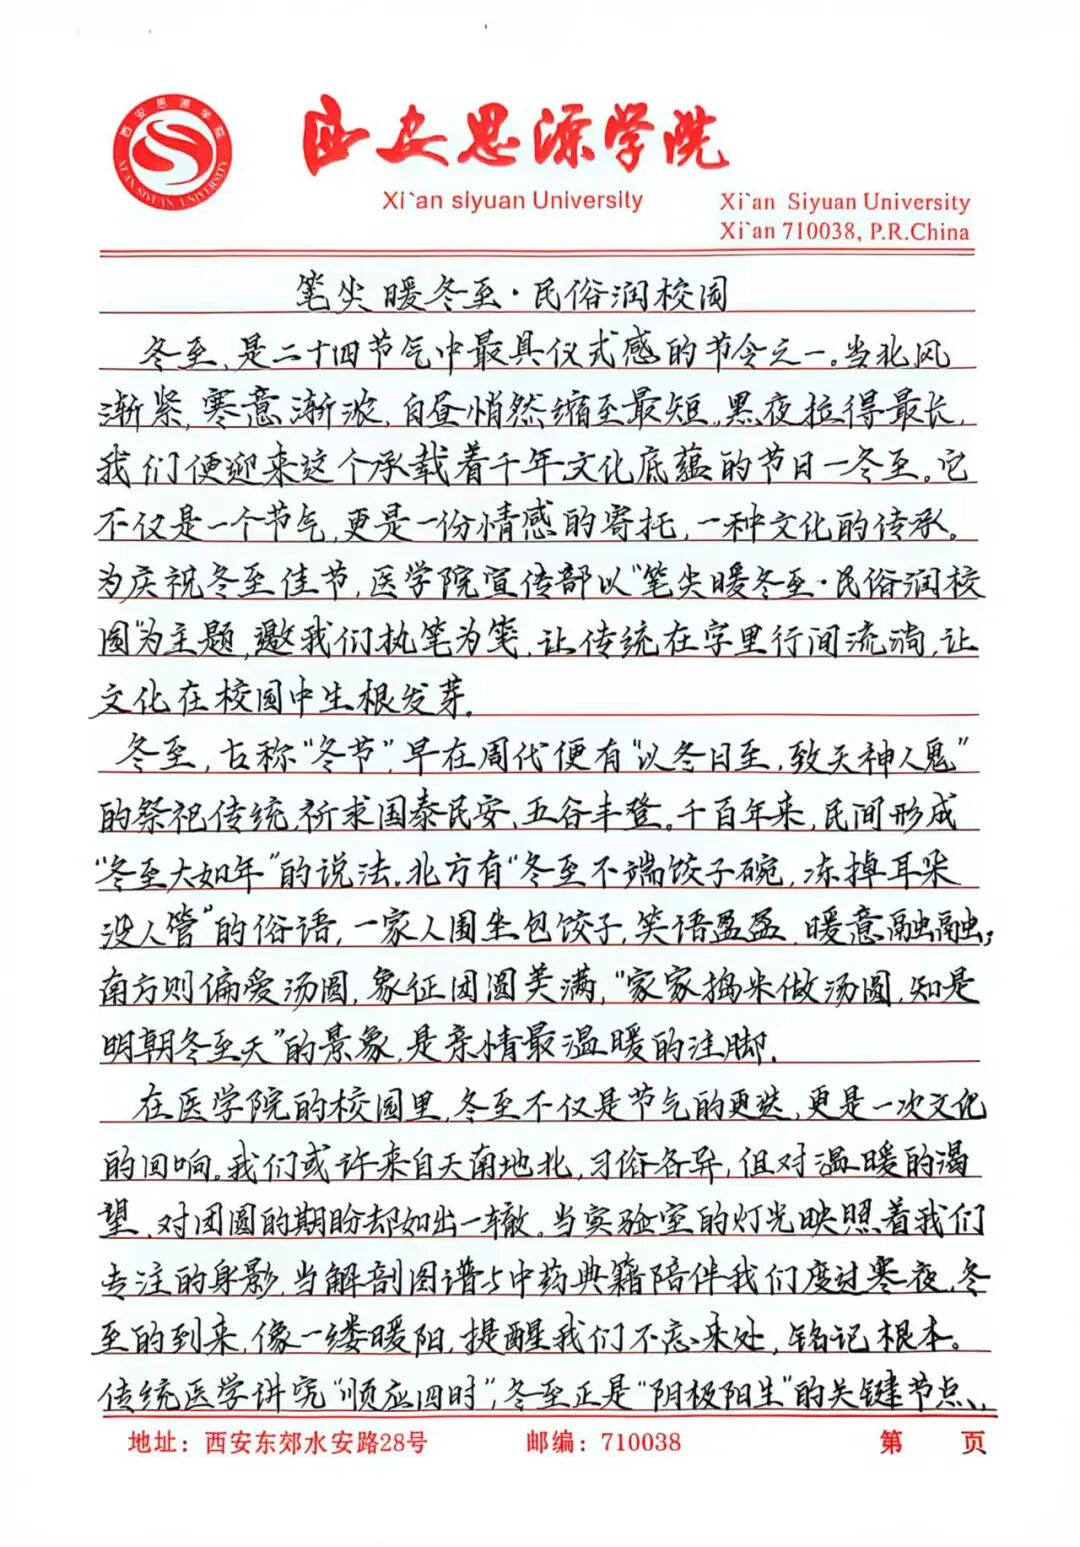 西安思源学院
XI'AN SIYUAN UNIVERSITY
西安思源学院
Xi`an siyuan University
Xi`an Siyuan University
Xi`an 710038, P.R.China
笔尖暖冬至·民俗润校园
冬至，是二十四节气中最具仪式感的节令之一。当北风
渐紧，寒意渐浓，白昼悄然缩至最短，黑夜拉得最长，
我们便迎来这个承载着千年文化底蕴的节日—冬至。它
不仅是一个节气，更是一份情感的寄托，一种文化的传承。
为庆祝冬至佳节，医学院宣传部以“笔尖暖冬至·民俗润校
园”为主题，邀我们执笔为笺，让传统在字里行间流淌，让
文化在校园中生根发芽。
冬至，古称“冬节”，早在周代便有“以冬日至，致天神人鬼”
的祭祀传统，祈求国泰民安、五谷丰登。千百年来，民间形成
“冬至大如年”的说法。北方有“冬至不端饺子碗，冻掉耳朵
没人管”的俗语，一家人围坐包饺子，笑语盈盈，暖意融融；
南方则偏爱汤圆，象征团圆美满，“家家捣米做汤圆，知是
明朝冬至天”的景象，是亲情最温暖的注脚。
在医学院的校园里，冬至不仅是节气的更迭，更是一次文化
的回响。我们或许来自天南地北，习俗各异，但对温暖的渴
望、对团圆的期盼却如出一辙。当实验室的灯光映照着我们
专注的身影，当解剖图谱与中药典籍陪伴我们度过寒夜，冬
至的到来，像一缕暖阳，提醒我们不忘来处，铭记根本。
传统医学讲究“顺应四时”，冬至正是“阴极阳生”的关键节点、
地址：西安东郊水安路28号
邮编：710038
第 页